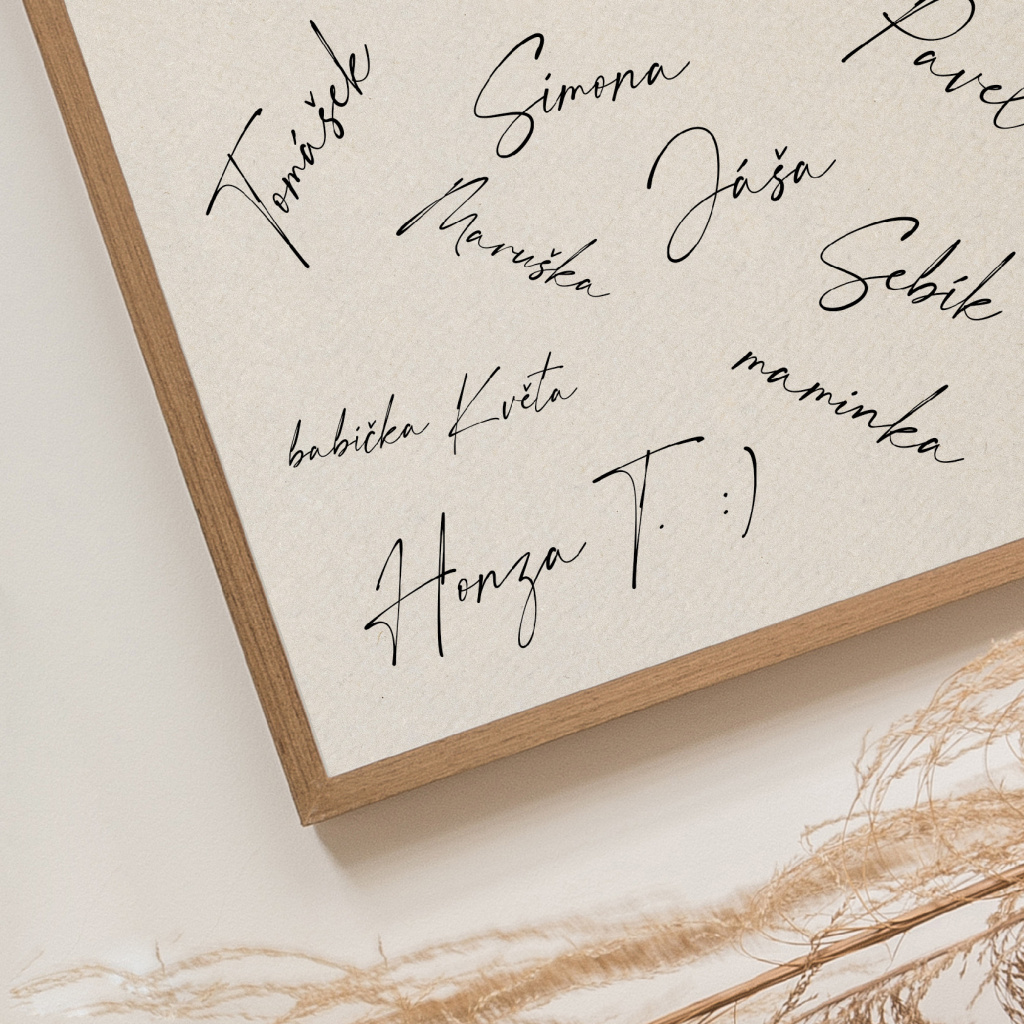 Tomášek
Simona
Pavel
Maruška
Jáša
Sebík
babička Květa
maminka
Honza T. :)